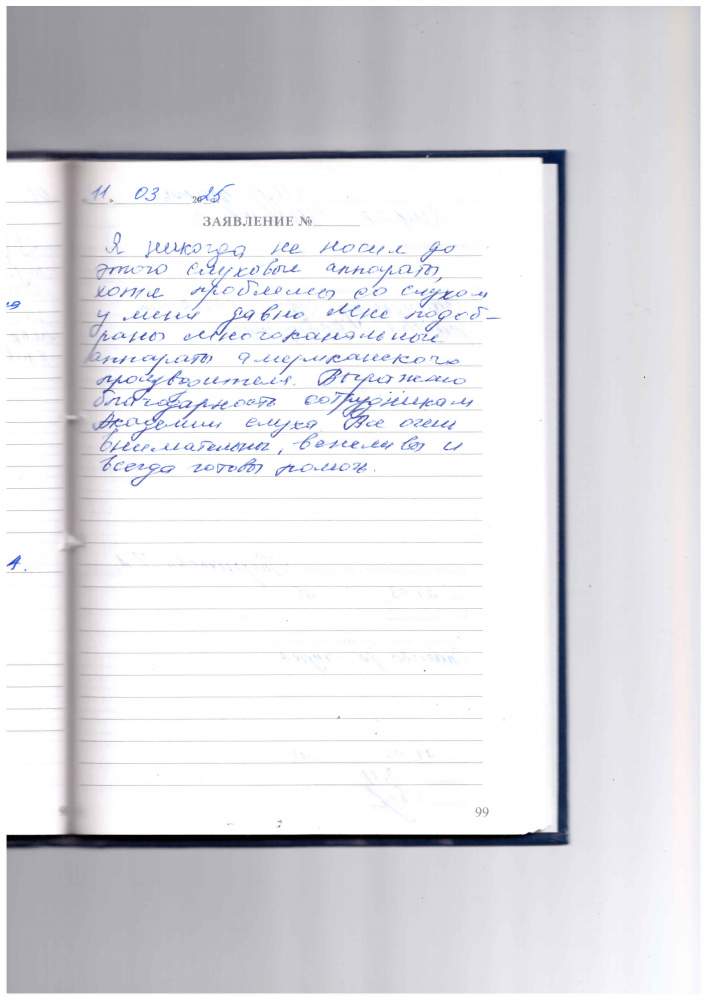 11. 03 2025
ЗАЯВЛЕНИЕ №
Я никогда не носил до
этого слуховые аппараты,
хотя проблемы со слухом
у меня давно. Мне подоб-
раны многоканальные
аппараты американского
производителя. Выражаю
благодарность сотрудникам
Академии слуха. Все очень
внимательны, вежливы и
всегда готовы помочь.
99